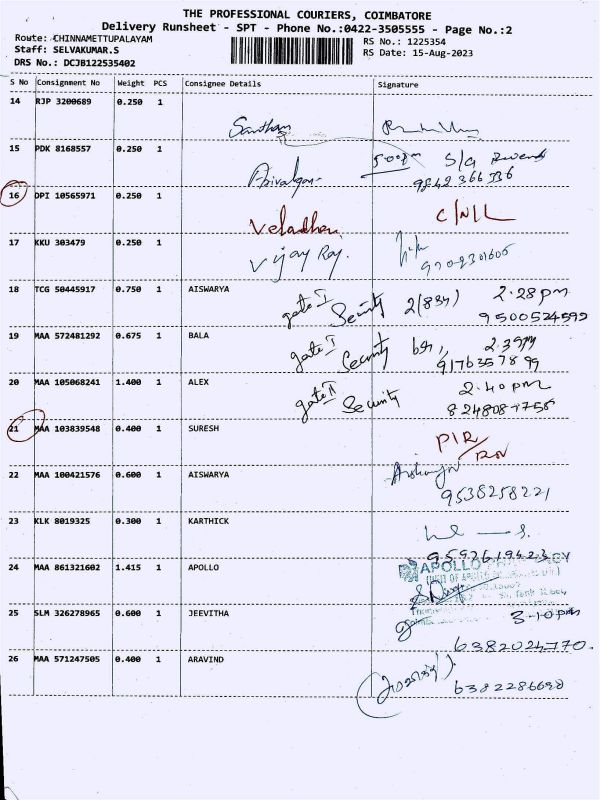 THE PROFESSIONAL COURIERS, COIMBATORE
Delivery Runsheet - SPT - Phone No.:0422-3505555 - Page No.:2
Route: CHINNAMETTUPALAYAM
RS No.: 1225354
Staff: SELVAKUMAR.S
RS Date: 15-Aug-2023
DRS No.: DCJB122535402
S No Consignment No Weight PCS Consignee Details Signature
14 RJP 3200689 0.250 1
Santham
15 PDK 8168557 0.250 1
5:00pm S/g
9842366336
16 DPI 10565971 0.250 1
Veladhan C/N/L
17 KKU 303479 0.250 1
Vijay Raj.
18 TCG 50445917 0.750 1 AISWARYA
gate I Security 2.28pm
9500524592
19 MAA 572481292 0.675 1 BALA
gate I Security 2.39pm
9176357899
20 MAA 105068241 1.400 1 ALEX
gate II Security 2.40pm
21 MAA 103839548 0.400 1 SURESH
PIR/
RN
22 MAA 100421576 0.600 1 AISWARYA
9538258221
23 KLK 8019325 0.300 1 KARTHICK
9592619423
24 MAA 861321602 1.415 1 APOLLO
APOLLO
25 SLM 326278965 0.600 1 JEEVITHA
3-10pm
6382024770.
26 MAA 571247505 0.400 1 ARAVIND
6382286698